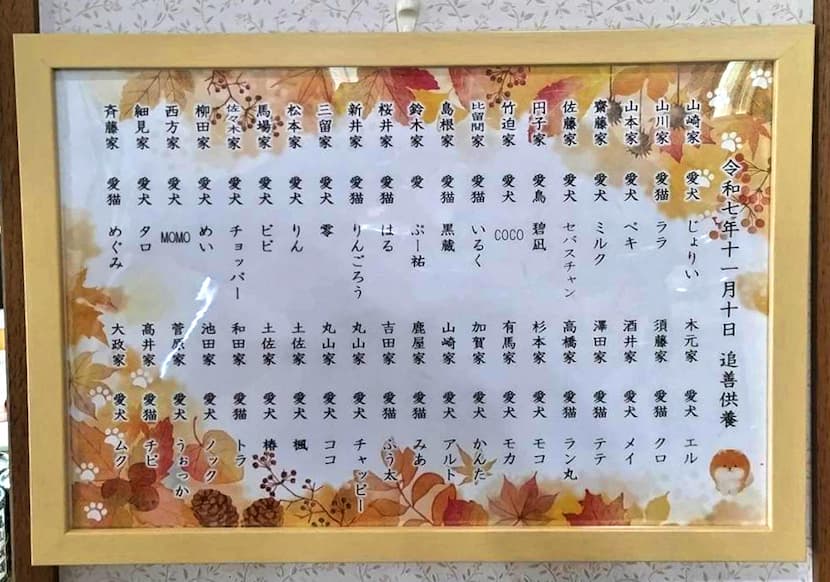 令和七年十一月十日　追善供養
山崎家　愛犬　じょりい
山川家　愛猫　ララ
山本家　愛犬　ペキ
齋藤家　愛犬　ミルク
佐藤家　愛犬　セバスチャン
円子家　愛鳥　碧凪
竹迫家　愛犬　COCO
比留間家　愛猫　いるく
島根家　愛猫　黒蔵
鈴木家　愛　ぷー祐
桜井家　愛猫　はる
新井家　愛猫　りんごろう
三留家　愛犬　零
松本家　愛犬　りん
馬場家　愛犬　ビビ
佐々木家　愛犬　チョッパー
柳田家　愛犬　めい
西方家　愛犬　MOMO
細見家　愛犬　タロ
斉藤家　愛猫　めぐみ
木元家　愛犬　エル
須藤家　愛猫　クロ
酒井家　愛犬　メイ
澤田家　愛猫　テテ
高橋家　愛猫　ラン丸
杉本家　愛犬　モコ
有馬家　愛犬　モカ
加賀家　愛猫　かんた
山崎家　愛犬　アルト
鹿屋家　愛猫　みあ
吉田家　愛猫　ふう太
丸山家　愛犬　チャッピー
丸山家　愛犬　ココ
土佐家　愛犬　楓
土佐家　愛犬　椿
和田家　愛猫　トラ
池田家　愛犬　ノック
菅原家　愛犬　うぉっか
高井家　愛猫　チビ
大政家　愛犬　ムク